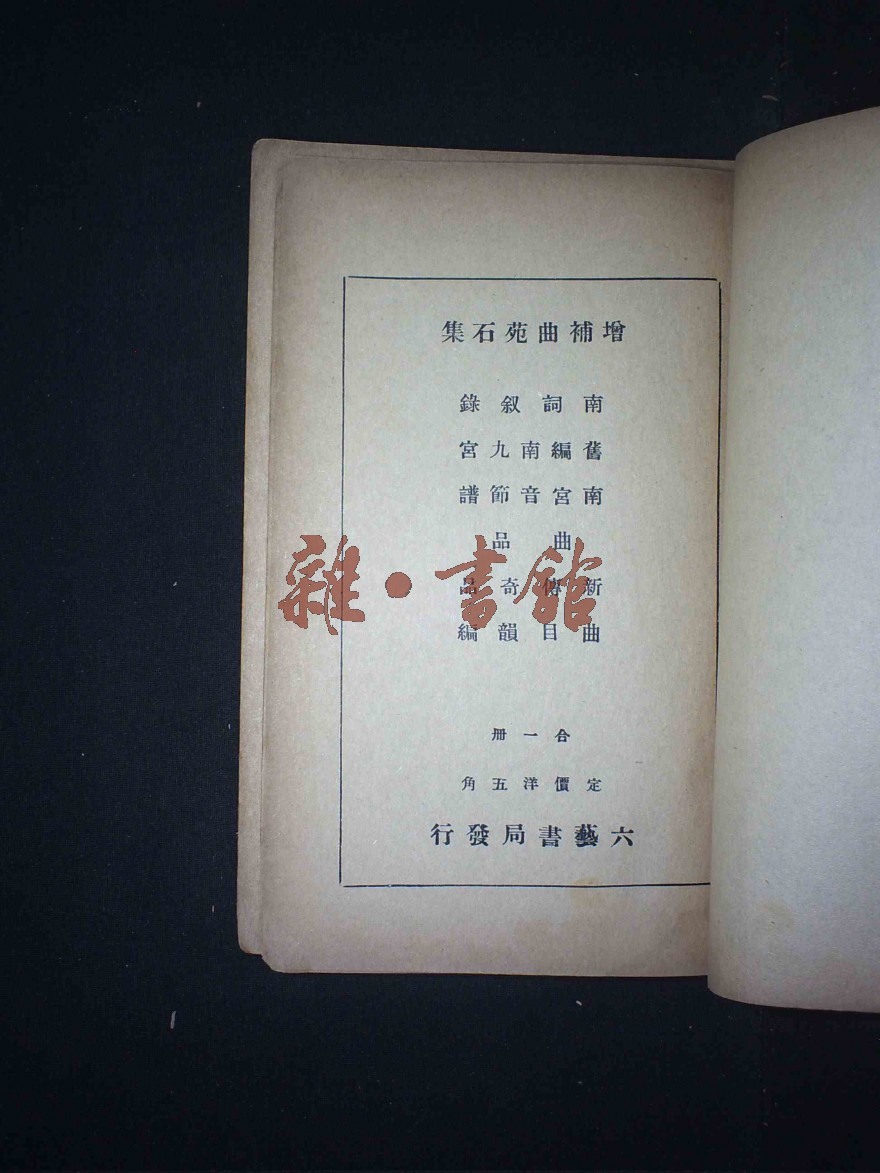 增補曲苑石集
南詞叙錄
舊編南九宮
南宮音節譜
曲品
新傳奇品
曲目韻編
雜·書館
合一冊
定價洋五角
六藝書局發行